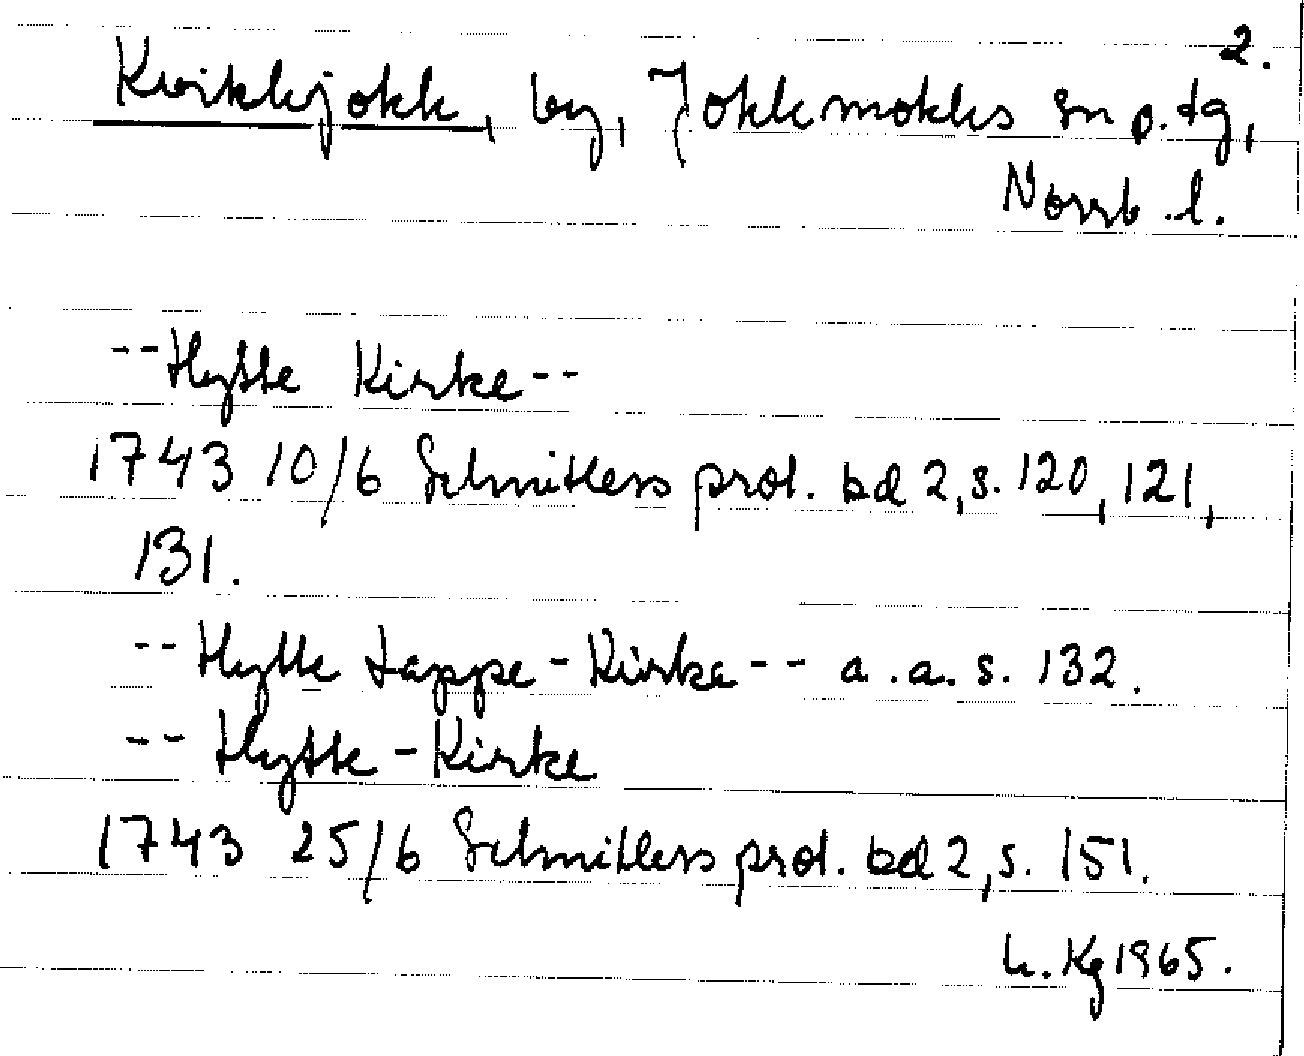 2.
Kvikkjokk, by, Jokkmokks sn o. tg,
Norrb. l.
-- Hytte Kirke --
1743 10/6 Schnitlers prot. bd 2, s. 120, 121,
131.
-- Hytte Lappe - Kirke -- a.a. s. 132.
-- Hytte - Kirke
1743 25/6 Schnitlers prot. bd 2, s. 151.
Kg 1965.